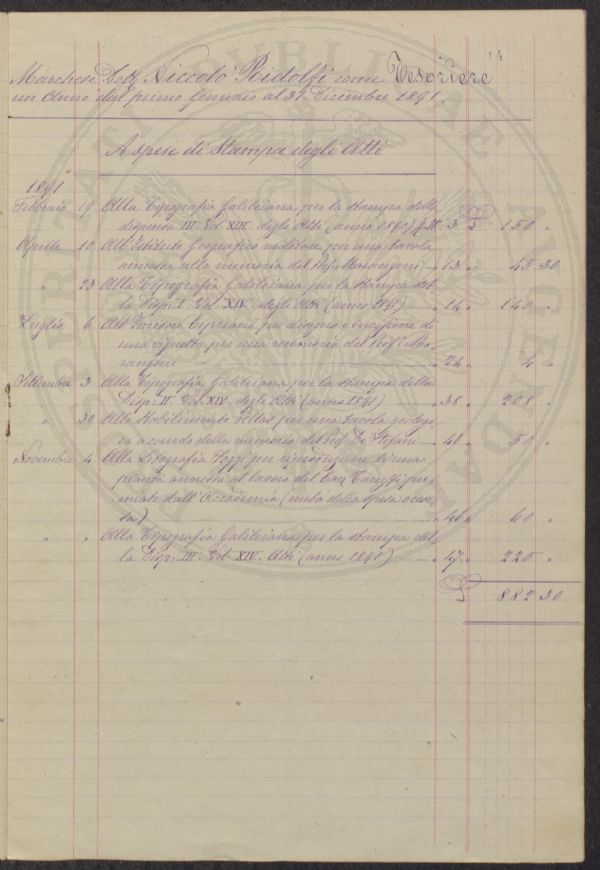 14
Marchese Dott Niccolò Ridolfi come Tesoriere
un Anno dal primo Gennaio al 31 Dicembre 1891.
A spese di Stampa degli Atti
1891
Febbraio 19 Alla Tipografia Galileiana per la stampa della
dispensa III. Vol. XIII. degli Atti (anno 1890) 3 £ 150 "
Aprile 10 All'Istituto Geografico militare per una tavola
annessa alla memoria del Prof. Marangoni " 13 " 45 30
" 23 Alla Tipografia Galileiana per la stampa del
la Disp. I. Vol. XIV. degli Atti (anno 1891) " 14 " 140 "
Luglio 6 All' Cipriani per disegno e incisione di
una vignetta per una memoria del Prof. Ma
rangoni " 24 " 4 "
Settembre 3 Alla Tipografia Galileiana per la stampa della
Disp. II. Vol. XIV. degli Atti (anno 1891) " 38 " 208 "
" 30 Allo Stabilimento Pellas per una tavola geologi
ca a corredo della memoria del Prof. De Stefani " 41 " 50 "
Novembre 4 Alla Litografia per riproduzione di una
pianta annessa al lavoro del pre
miato dall'Accademia (metà della spesa occor
sa) " 46 " 60 "
" " Alla Tipografia Galileiana per la stampa del
la Disp. III. Vol. XIV. Atti (anno 1891) " 47 " 225 "
£ 882 30